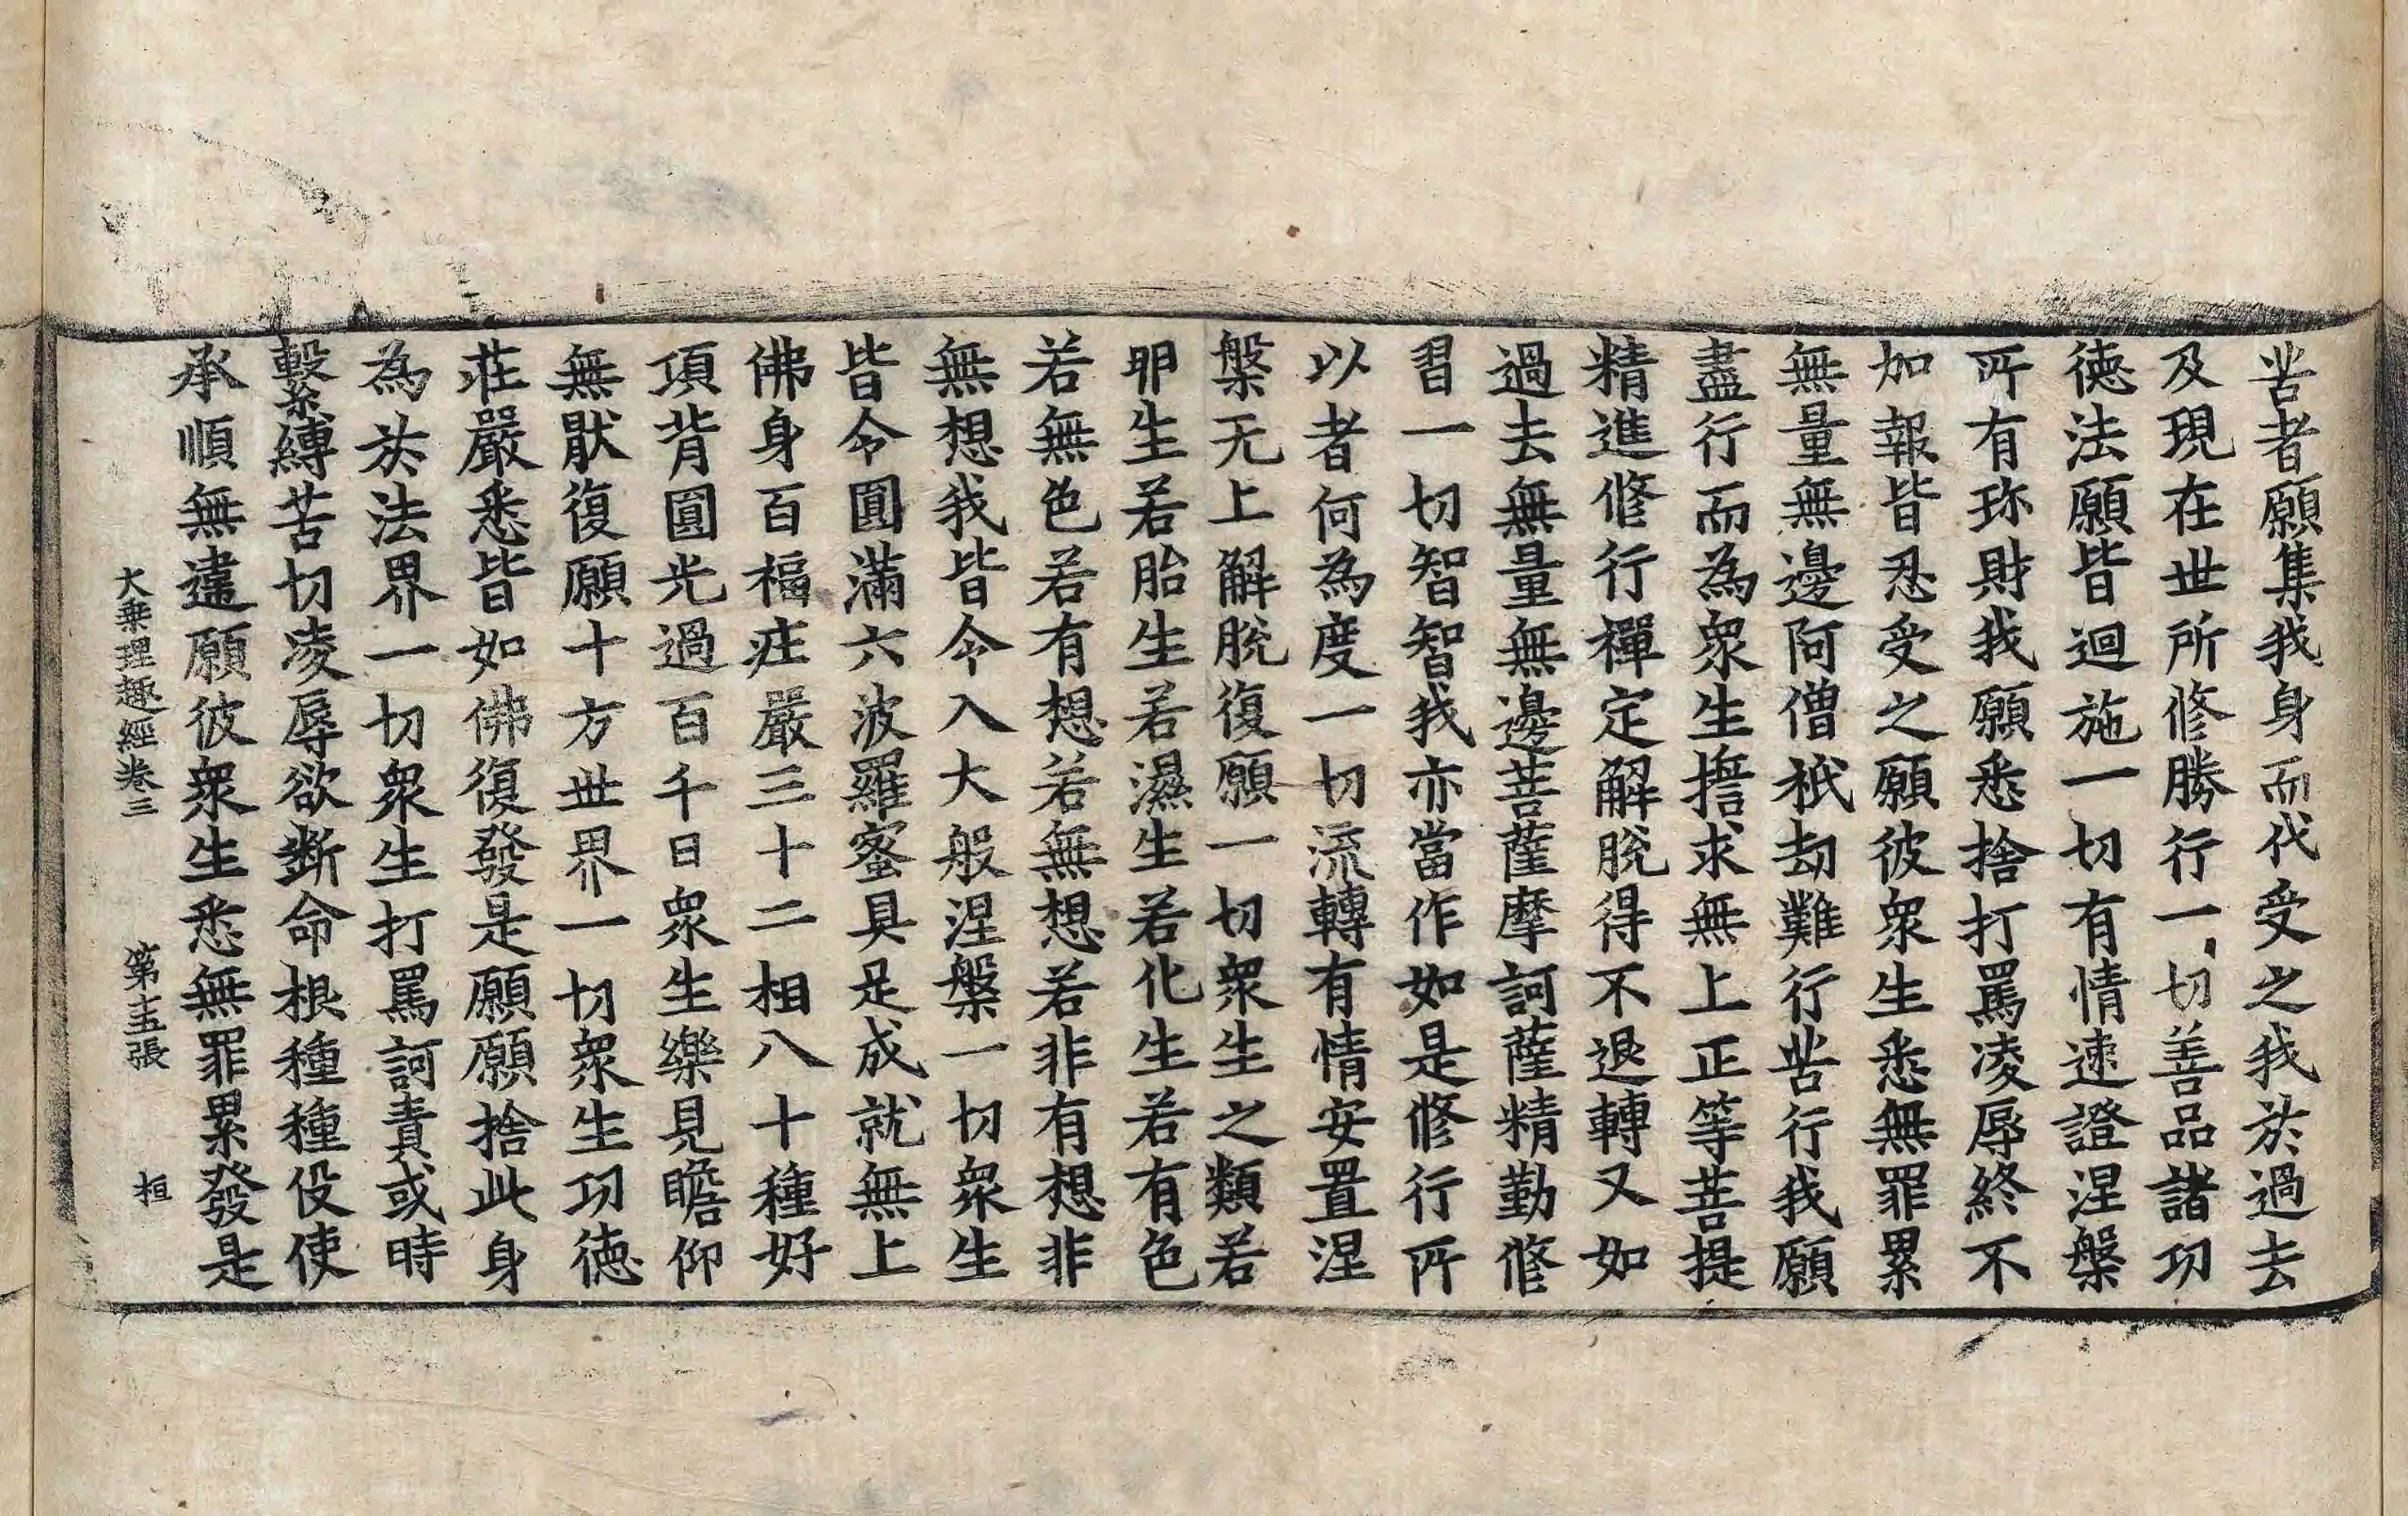 苦者願集我身而代受之我於過去
及現在世所修勝行一切善品諸功
徳法願皆迴施一切有情速證涅槃
所有珎財我願悉捨打罵凌辱終不
加報皆忍受之願彼衆生悉無罪累
無量無邊阿僧祇劫難行苦行我願
盡行而為衆生擔求無上正等菩提
精進修行禪定解脫得不退轉又如
過去無量無邊菩薩摩訶薩精勤修
習一切智智我亦當作如是修行所
以者何為度一切流轉有情安置涅
槃无上解脫復願一切衆生之類若
卵生若胎生若濕生若化生若有色
若無色若有想若無想若非有想非
無想我皆令入大般涅槃一切衆生
皆令圓滿六波羅蜜具足成就無上
佛身百福莊嚴三十二相八十種好
項背圓光過百千日衆生樂見瞻仰
無猒復願十方世界一切衆生功徳
莊嚴悉皆如佛復發是願願捨此身
為於法界一切衆生打罵訶責或時
繫縛苦切凌辱欲斷命根種種役使
承順無違願彼衆生悉無罪累發是
大乗理趣經卷三 第十五張 桓